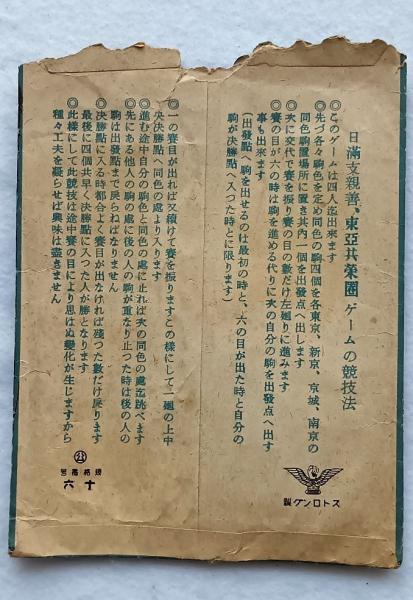 日滿支親善、東亞共榮圈ゲームの競技法
◎このゲームは四人迄出來ます
◎先づ各々駒色を定め同色の駒四個を各東京、新京、京城、南京の
同色駒置場所に置き共内一個を出發点へ出します
◎次に交代で賽を振り賽の目の數だけ左廻りに進みます
◎賽の目が六の時は駒を進める代りに次の自分の駒を出發点へ出す
事も出來ます
(出發點へ駒を出せるのは最初の時と、六の目が出た時と自分の
駒が決勝點へ入つた時とに限ります)
◎一の賽目が出れば又續けて賽を振りますこの樣にして一廻の上中
央決勝點へ同色の處より入ります
◎進む途中自分の駒色と同色の處に止れば次の同色の處迄跳べます
◎先にある他人の駒の處に後の人の駒が重なり止つた時は後の人の
駒は出發點まで戻らねばなりません
◎決勝點に入る時都合よく賽目が出なければ殘つた數だけ戻ります
◎最後に四個共早く決勝點に入つた人が勝となります
◎此樣にして此競技は途中賽の目により思はぬ變化が生じますから
種々工夫を凝らせば興味は盡きません
ストロング製
公
規格番号
十六